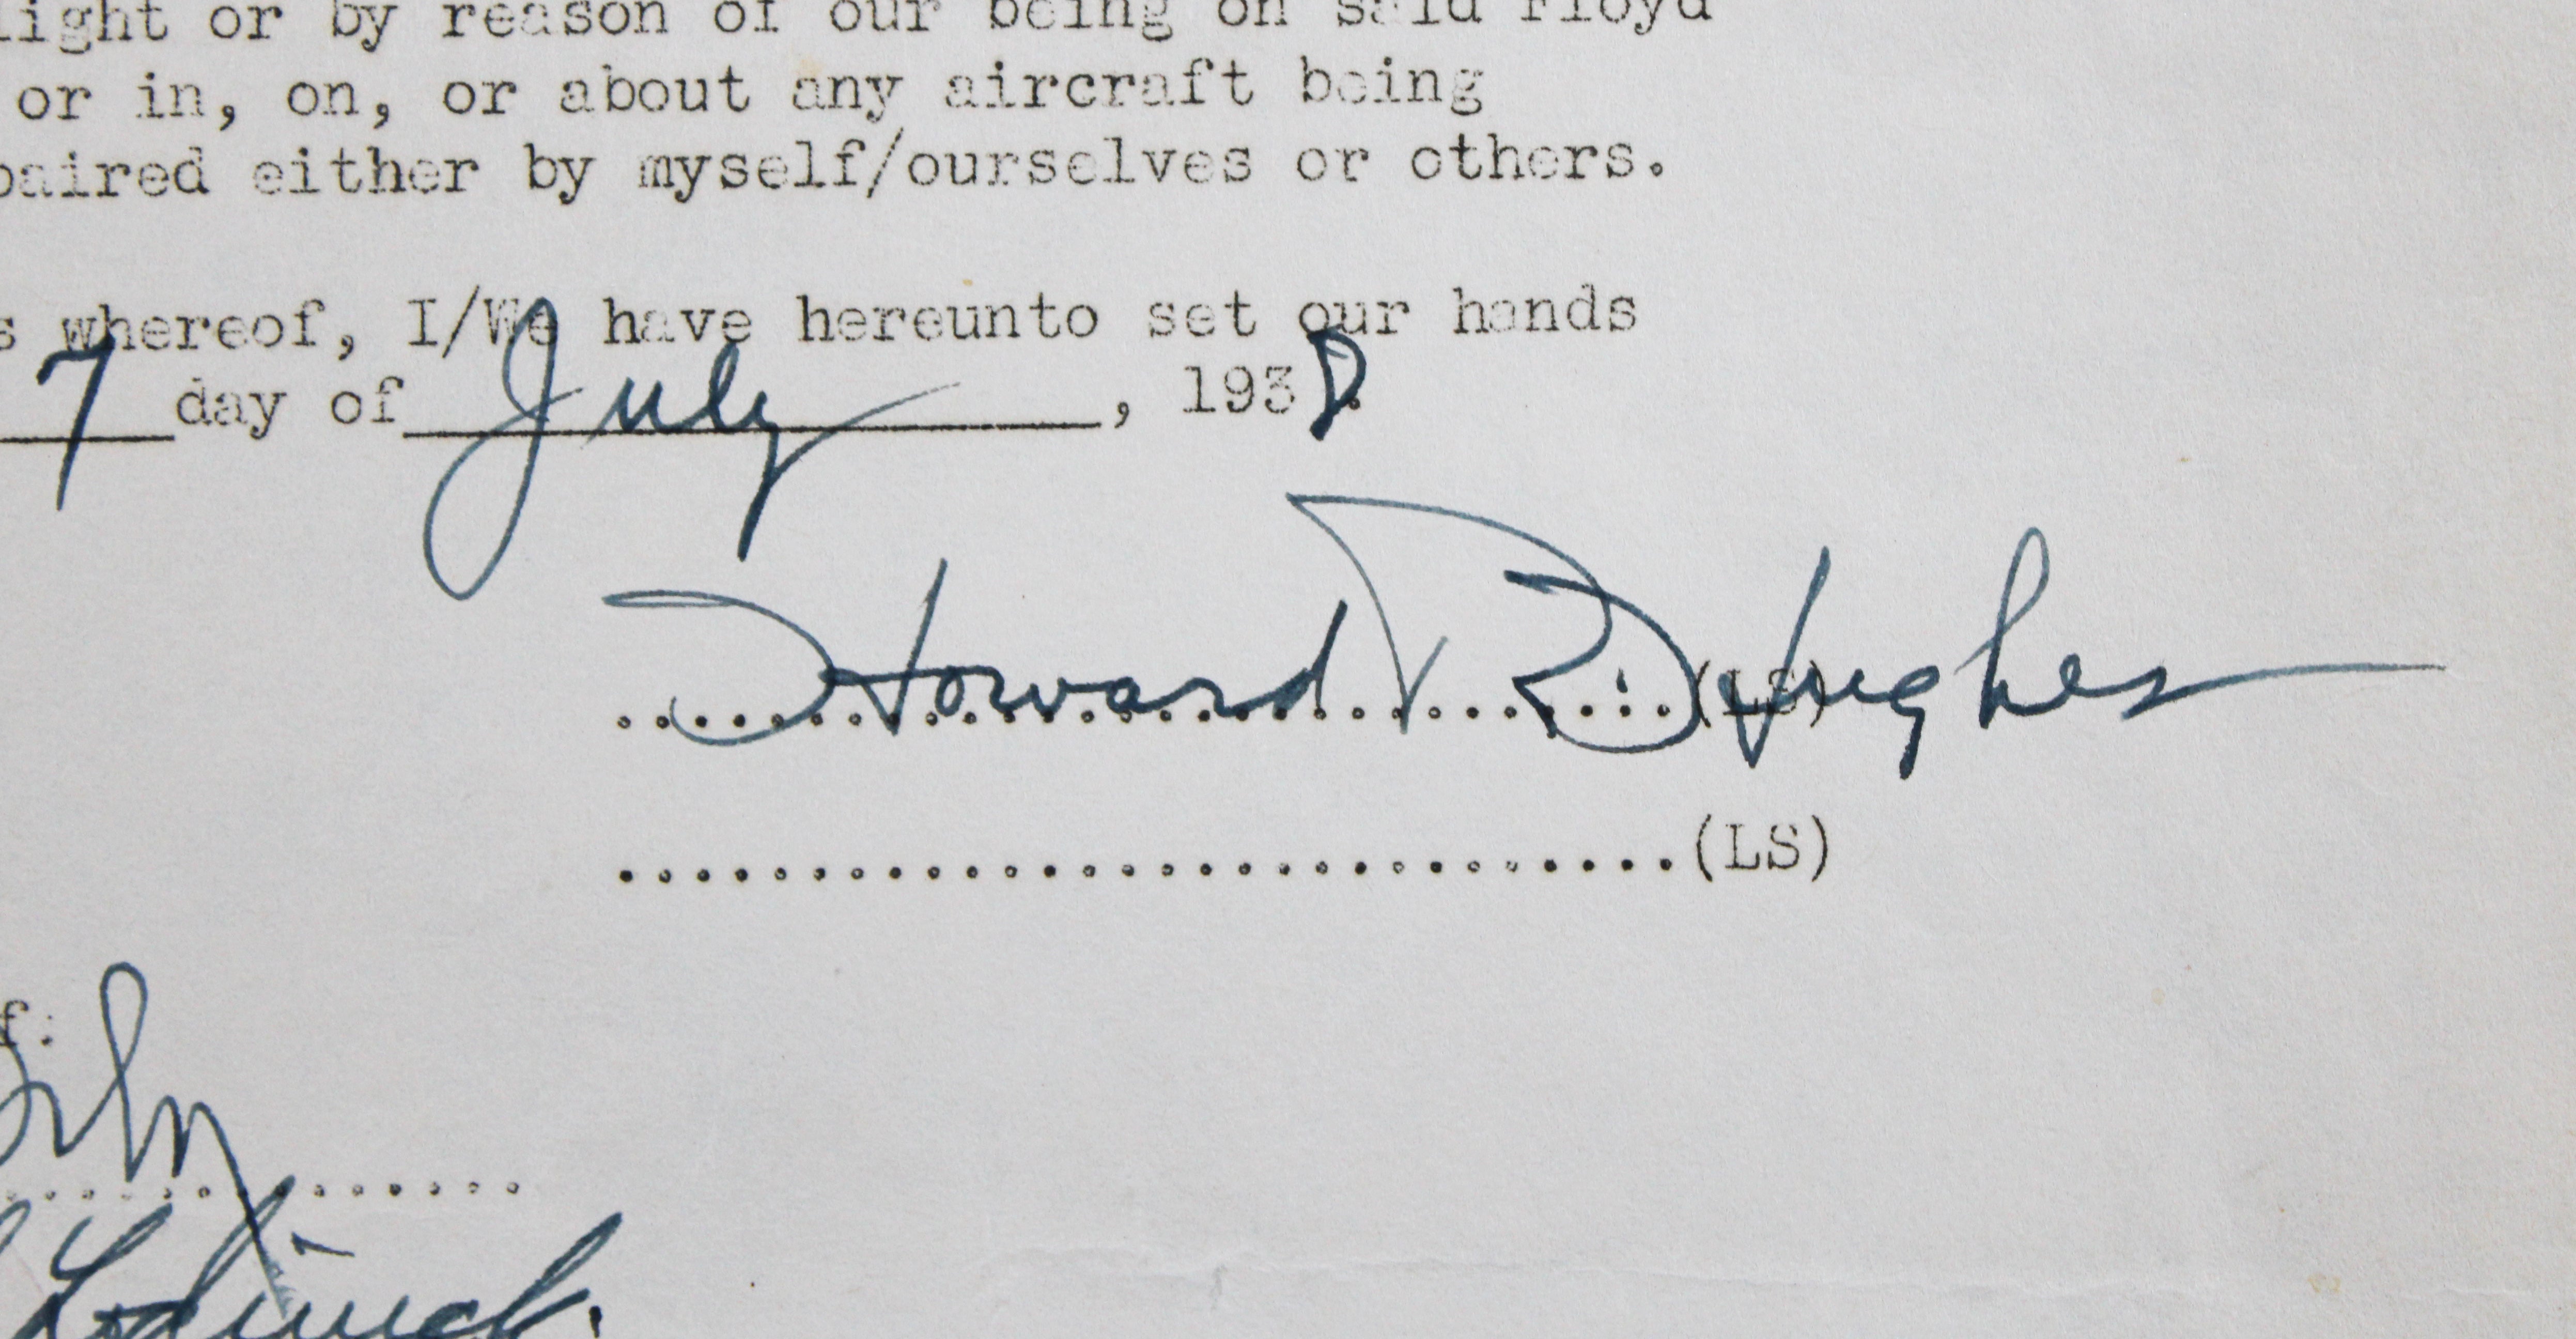 light or by reason of our being on said Floyd
or in, on, or about any aircraft being
paired either by myself/ourselves or others.
s whereof, I/We have hereunto set our hands
7 day of July, 1938.
Howard R. Hughes (LS)
(LS)
f: